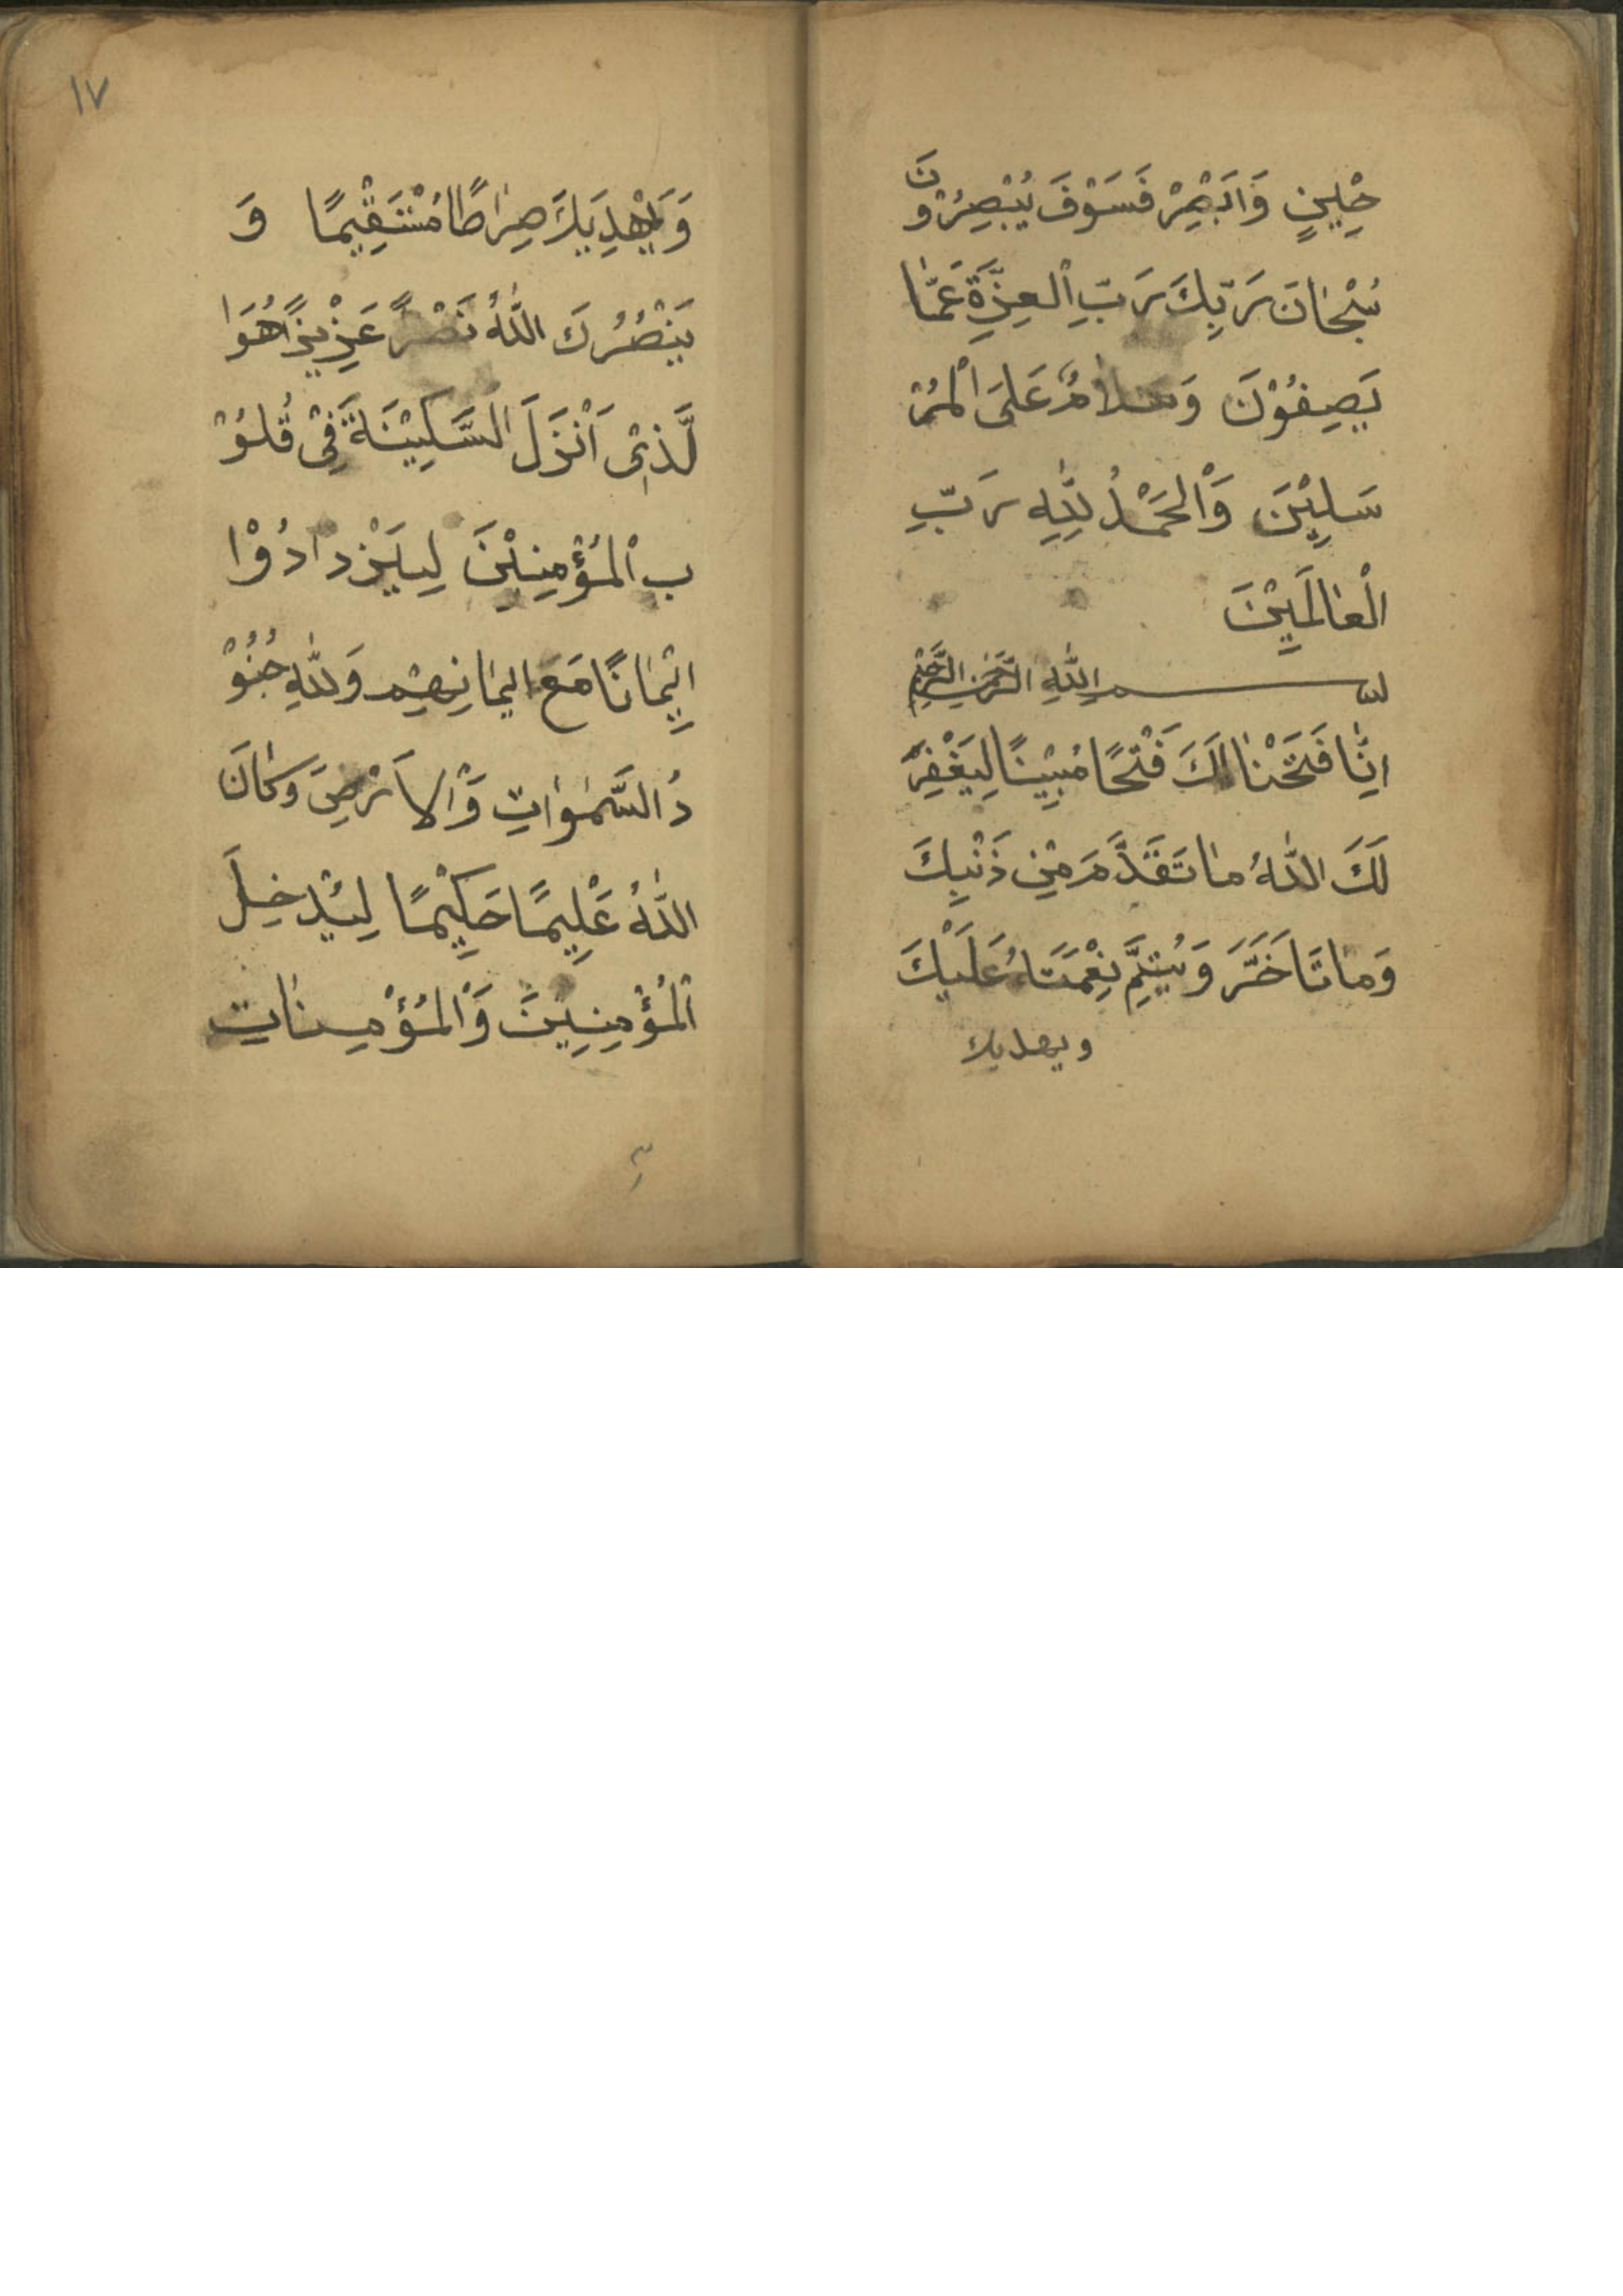 حِيْنٍ وَاَبْصِرْ فَسَوْفَ يُبْصِرُوْنَ
سُبْحَانَ رَبِّكَ رَبِّ اْلعِزَّةِ عَمَّا
يَصِفُوْنَ وَسَلَامٌ عَلَى اْلمُرْ
سَلِيْنَ وَاْلحَمْدُ لِلّٰهِ رَبِّ
اْلعَالَمِيْنَ
بسم اللّٰهِ الرَّحْمٰنِ الرَّحِيْمِ
اِنَّا فَتَحْنَا لَكَ فَتْحًا مُبِيْنًا لِيَغْفِرَ
لَكَ اللّٰهُ مَا تَقَدَّمَ مِنْ ذَنْبِكَ
وَمَا تَاَخَّرَ وَيُتِمَّ نِعْمَتَهُ عَلَيْكَ
ويهديك
١٧
وَيَهْدِيَكَ صِرَاطًا مُسْتَقِيْمًا وَ
يَنْصُرُكَ اللّٰهُ نَصْرًا عَزِيْزًا هُوَا
لَّذِيْ اَنْزَلَ السَّكِيْنَةَ فِيْ قُلُوْ
بِ اْلمُؤْمِنِيْنَ لِيَزْدَادُوْا
اِيْمَانًا مَعَ اِيمَانِهِمْ وَلِلّٰهِ جُنُوْ
دُ السَّمٰوَاتِ وَاْلاَرْضِ وَكَانَ
اللّٰهُ عَلِيمًا حَكِيْمًا لِيُدْخِلَ
اْلمُؤْمِنِيْنَ وَاْلمُؤْمِنَاتِ